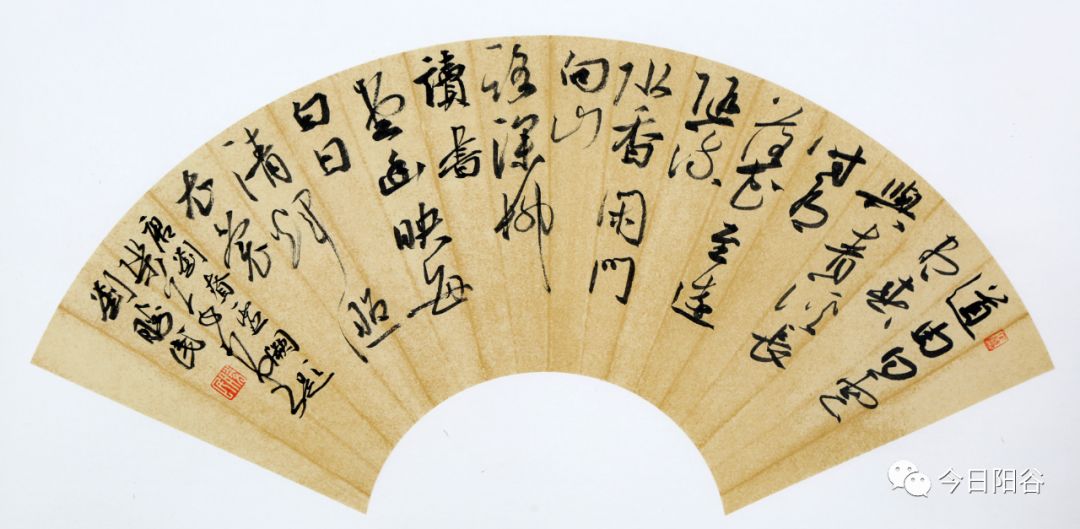 道由白雲
盡春
與青溪長
時有
落花至遠
隨流
水香閑門
向山
路深柳
讀書
堂幽映每
白日
清輝照
衣裳
唐劉眘虛闕題
劉
今日阳谷